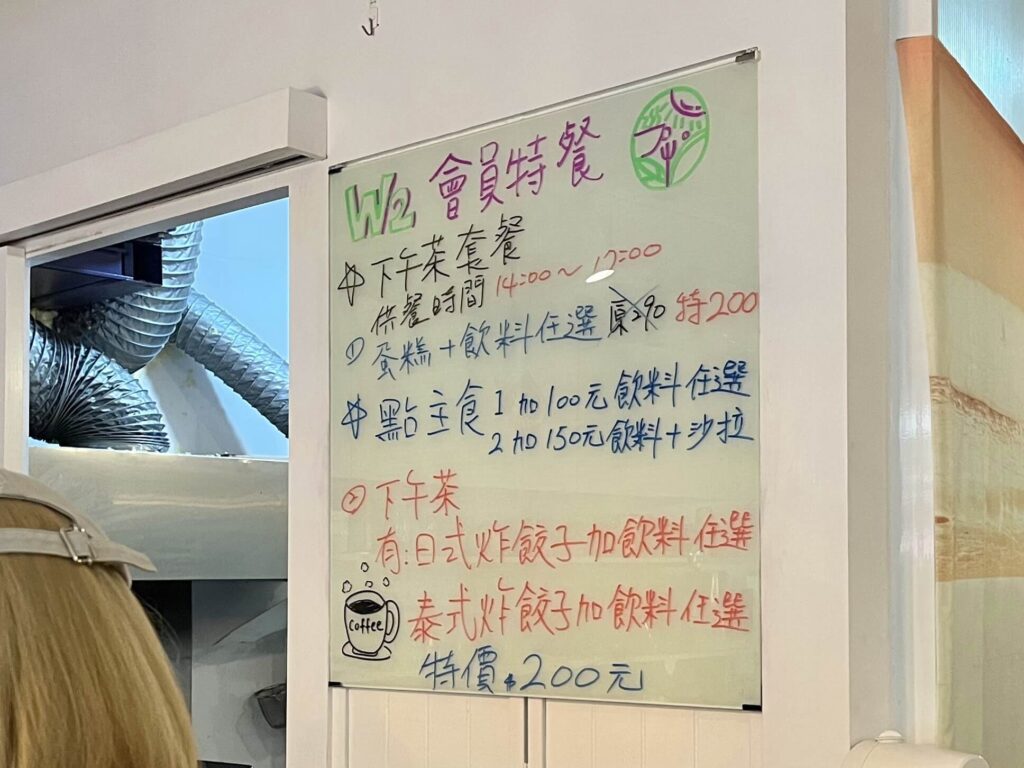 W/2 會員特餐
下午茶套餐
供餐時間 14:00~17:00
① 蛋糕+飲料任選 原290 特200
點主食 1 加100元飲料任選
2 加150元飲料+沙拉
② 下午茶
有:日式炸餃子加飲料任選
coffee 泰式炸餃子加飲料任選
特價$200元